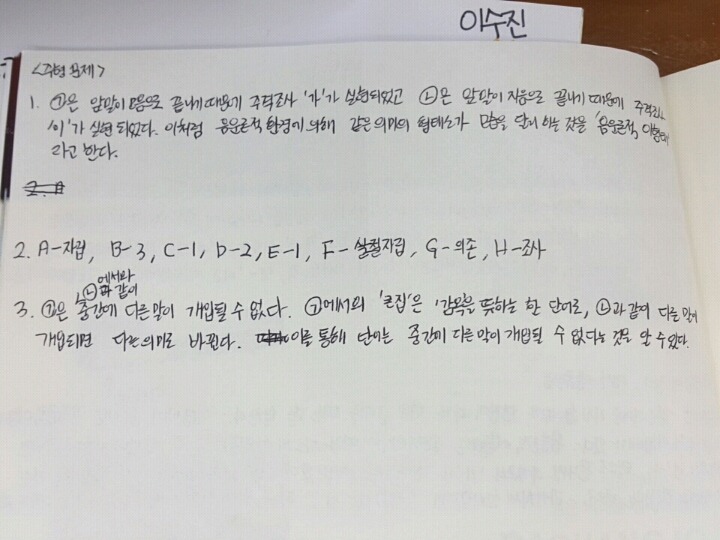 이수진
<수업 문제>
1. ㉠은 앞말이 모음으로 끝나기 때문에 주격조사 '가'가 실현되었고 ㉡은 앞말이 자음으로 끝나기 때문에 주격조사
'이'가 실현되었다. 이처럼 음운론적 환경에 의해 같은 의미의 형태소가 모습을 달리 하는 것을 '음운론적 이형태'
라고 한다.
2. A-자립, B-3, C-1, D-2, E-1, F-실질자립, G-의존, H-조사
에서와
㉡과 같이
3. ㉠은 중간에 다른 말이 개입될 수 없다. ㉠에서의 '큰집'은 '감옥'을 뜻하는 한 단어로, ㉡과 같이 다른 말이
개입되면 다른 의미로 바뀐다. 이를 통해 단어는 중간에 다른 말이 개입될 수 없다는 것을 알 수 있다.